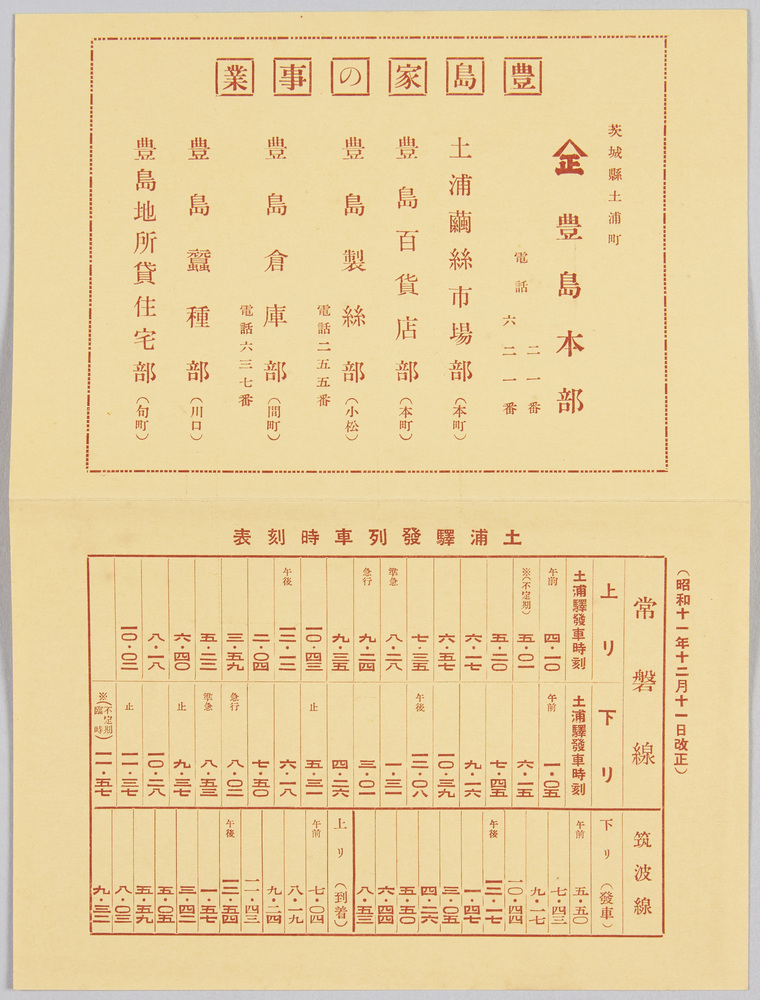 豊島家の事業
茨城縣土浦町
正 豊島本部
電話 二一番
六二一番
土浦繭絲市場部(本町)
豊島百貨店部(本町)
豊島製絲部(小松)
電話二五五番
豊島倉庫部(間町)
電話六三七番
豊島蠶種部(川口)
豊島地所貸住宅部(旬町)
土浦驛發列車時刻表
(昭和十一年十二月十一日改正)
常磐線
上リ
土浦驛發車時刻
午前 四・一〇
※(不定期) 五・〇一
五・二〇
六・一七
六・五七
七・三五
準急 八・二八
急行 九・二四
九・三五
一〇・四三
午後 一二・一二
二・〇四
三・五九
五・二二
六・四〇
八・一八
一〇・〇二
下リ
土浦驛發車時刻
午前 一・〇五
六・一五
七・五四
九・一六
一〇・三九
午後 一二・〇八
一・三一
三・〇一
四・二六
止 五・三一
六・一八
七・五〇
急行 八・〇二
準急 八・五三
止 九・三七
一〇・二八
止 一一・三七
※(不定期臨時) 一一・五七
筑波線
下リ(發車)
午前 五・五〇
七・四三
九・一七
一〇・四四
午後 一二・一七
一・四七
三・〇五
四・二六
五・五〇
六・四四
八・五三
上リ(到着)
午前 七・〇四
八・一九
九・二四
一一・四三
午後 一二・五四
一・五七
三・四二
五・〇五
五・五九
八・〇三
九・三二